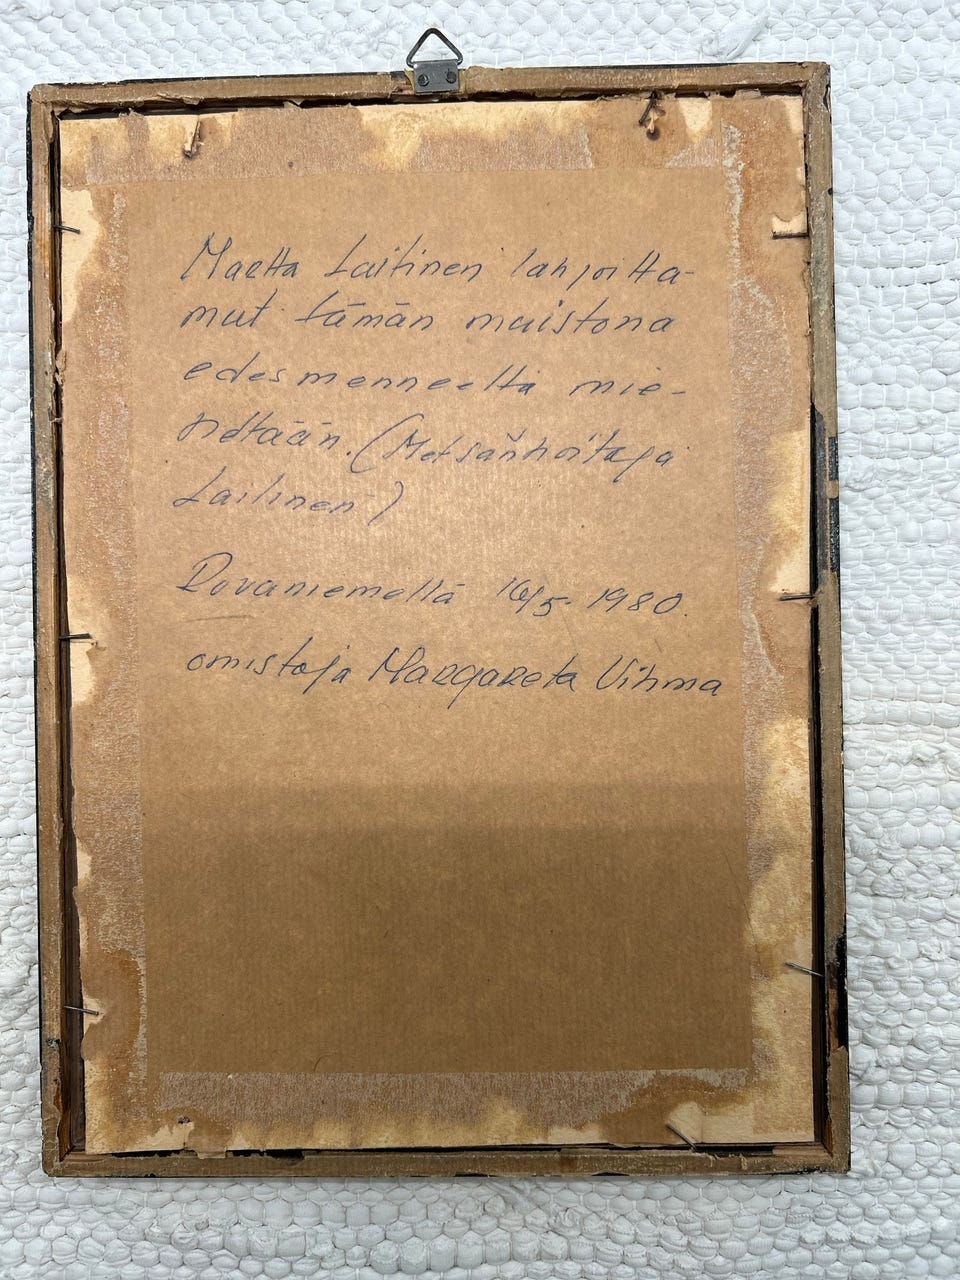 Maetta Laitinen lahjoitta-
mut tämän muistona
edesmenneeltä mie-
heltään. (Metsänhoitaja
Laitinen)
Rovaniemellä 16/5- 1980.
omistaja Margareta Vihma